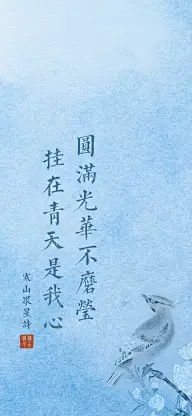 圓滿光華不磨瑩
挂在青天是我心
寒山眾星詩